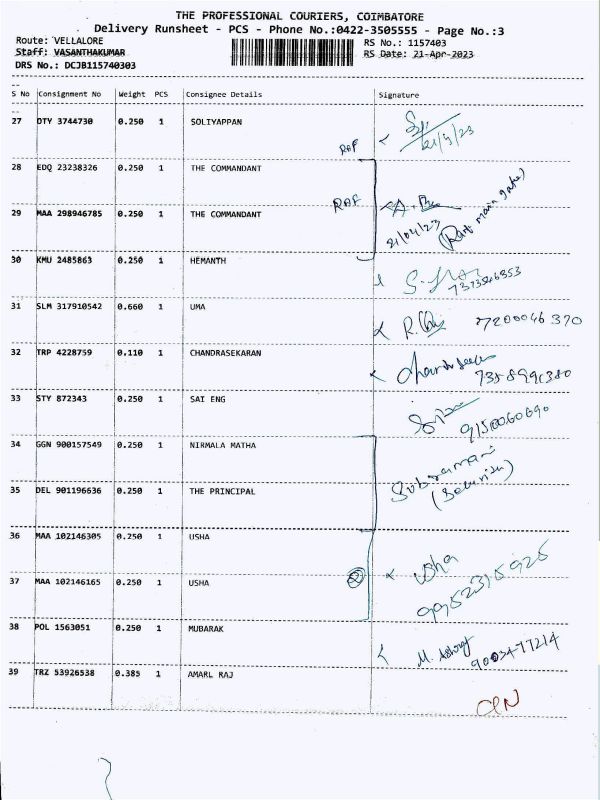 THE PROFESSIONAL COURIERS, COIMBATORE
Delivery Runsheet - PCS - Phone No.:0422-3505555 - Page No.:3
Route: VELLALORE RS No.: 1157403
Staff: VASANTHAKUMAR RS Date: 21-Apr-2023
DRS No.: DCJB115740303
S No Consignment No Weight PCS Consignee Details Signature
27 DTY 3744730 0.250 1 SOLIYAPPAN
21/4/23
RAF
28 EDQ 23238326 0.250 1 THE COMMANDANT
29 MAA 298946785 0.250 1 THE COMMANDANT RAF
21/04/23 (RAF main gate)
30 KMU 2485863 0.250 1 HEMANTH
31 SLM 317910542 0.660 1 UMA 7200046370
32 TRP 4228759 0.110 1 CHANDRASEKARAN
7358991380
33 STY 872343 0.250 1 SAI ENG
9150060690
34 GGN 900157549 0.250 1 NIRMALA MATHA
Subramani
35 DEL 901196636 0.250 1 THE PRINCIPAL
(Security)
36 MAA 102146305 0.250 1 USHA
Usha
37 MAA 102146165 0.250 1 USHA 2
38 POL 1563051 0.250 1 MUBARAK
M. 9003477214
39 TRZ 53926538 0.385 1 AMARL RAJ
CLN